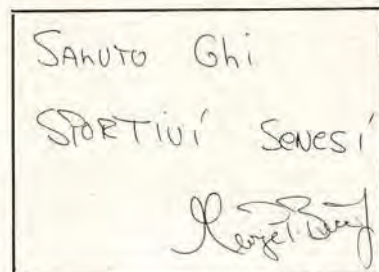 SALUTO GLI
SPORTIVI SENESI